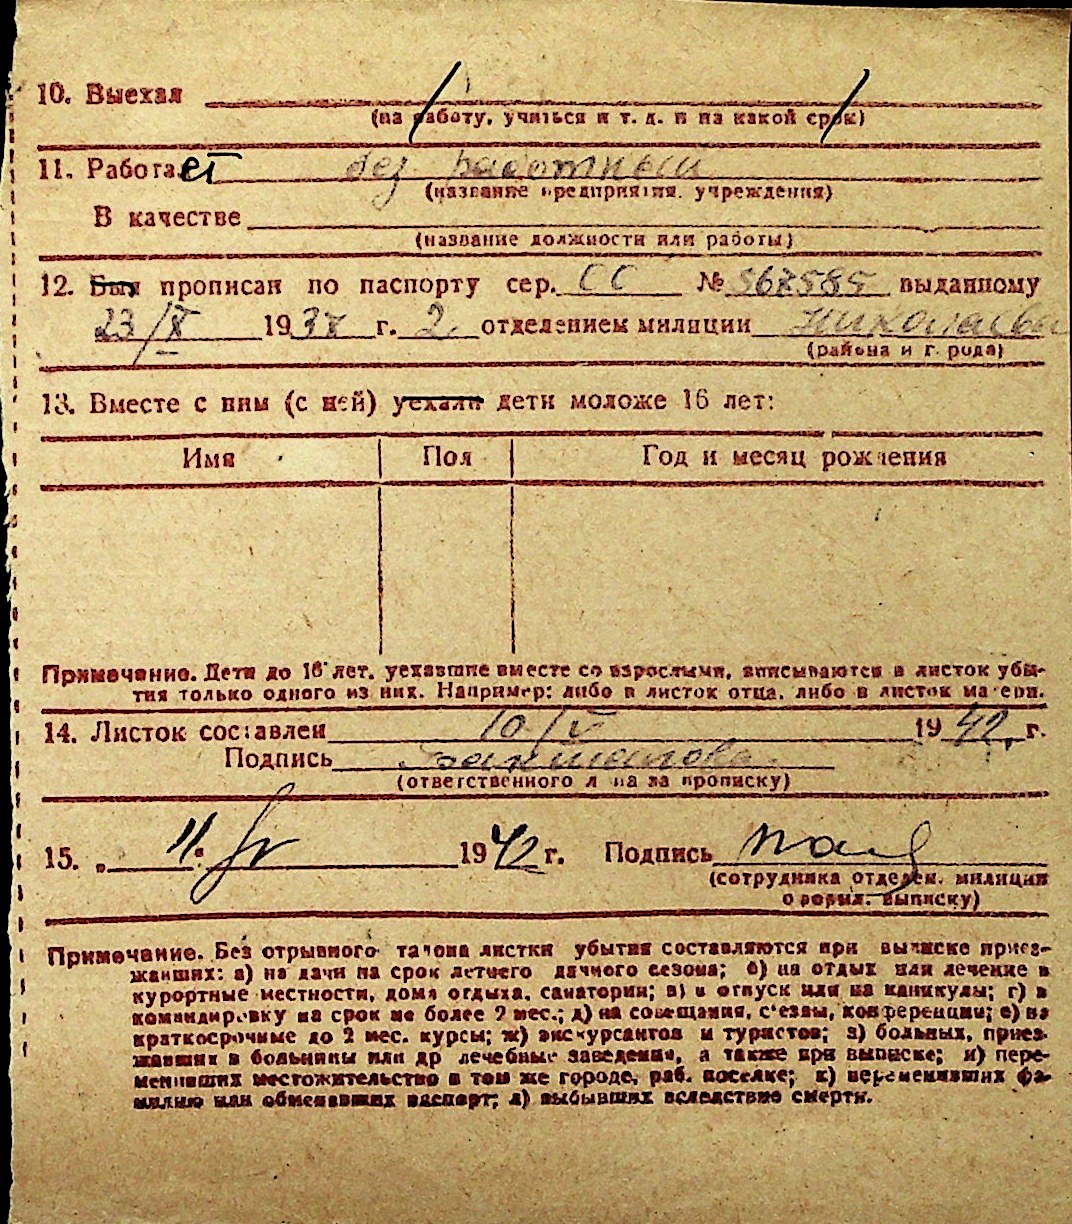 10. Выехал
(на работу, учиться и т. д. и на какой срок)
11. Работает без работный
(название предприятия, учреждения)
В качестве
(название должности или работы)
12. Был прописан по паспорту сер. СС № 567585 выданному
23/X 1937 г. 2. отделением милиции Николаева
(района и города)
13. Вместе с ним (с ней) уехали дети моложе 16 лет:
Имя Пол Год и месяц рождения
Примечание. Дети до 16 лет, уехавшие вместе со взрослыми, вписываются в листок убы-
тия только одного из них. Например: либо в листок отца, либо в листок матери.
14. Листок составлен 10/V 1942 г.
Подпись
(ответственного лица за прописку)
15. „ 11 “ 1942 г. Подпись
(сотрудника отделен. милиции
оформл. выписку)
Примечание. Без отрывного талона листки убытия составляются при выписке приез-
жавших: а) на дачи на срок летнего дачного сезона; б) на отдых или лечение в
курортные местности, дома отдыха, санатории; в) в отпуск или на каникулы; г) в
командировку на срок не более 2 мес.; д) на совещания, с'езды, конференции; е) на
краткосрочные до 2 мес. курсы; ж) экскурсантов и туристов; з) больных, приез-
жавших в больницы или др лечебные заведения, а также при выписке; и) пере-
менивших местожительство в том же городе, раб. поселке; к) переменивших фа-
милию или обменявших паспорт; л) выбывших вследствие смерти.